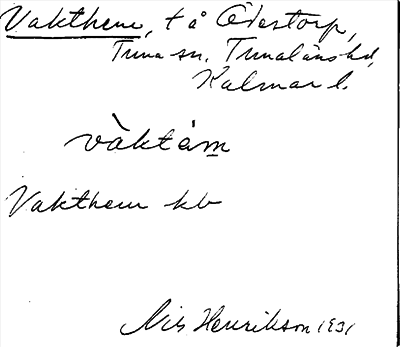 Vakthem, t å Ödestorp,
Tuna sn, Tunaläns hd,
Kalmar l.
và̀ktèm̲
Vakthem kb
Nils Henrikson 1931